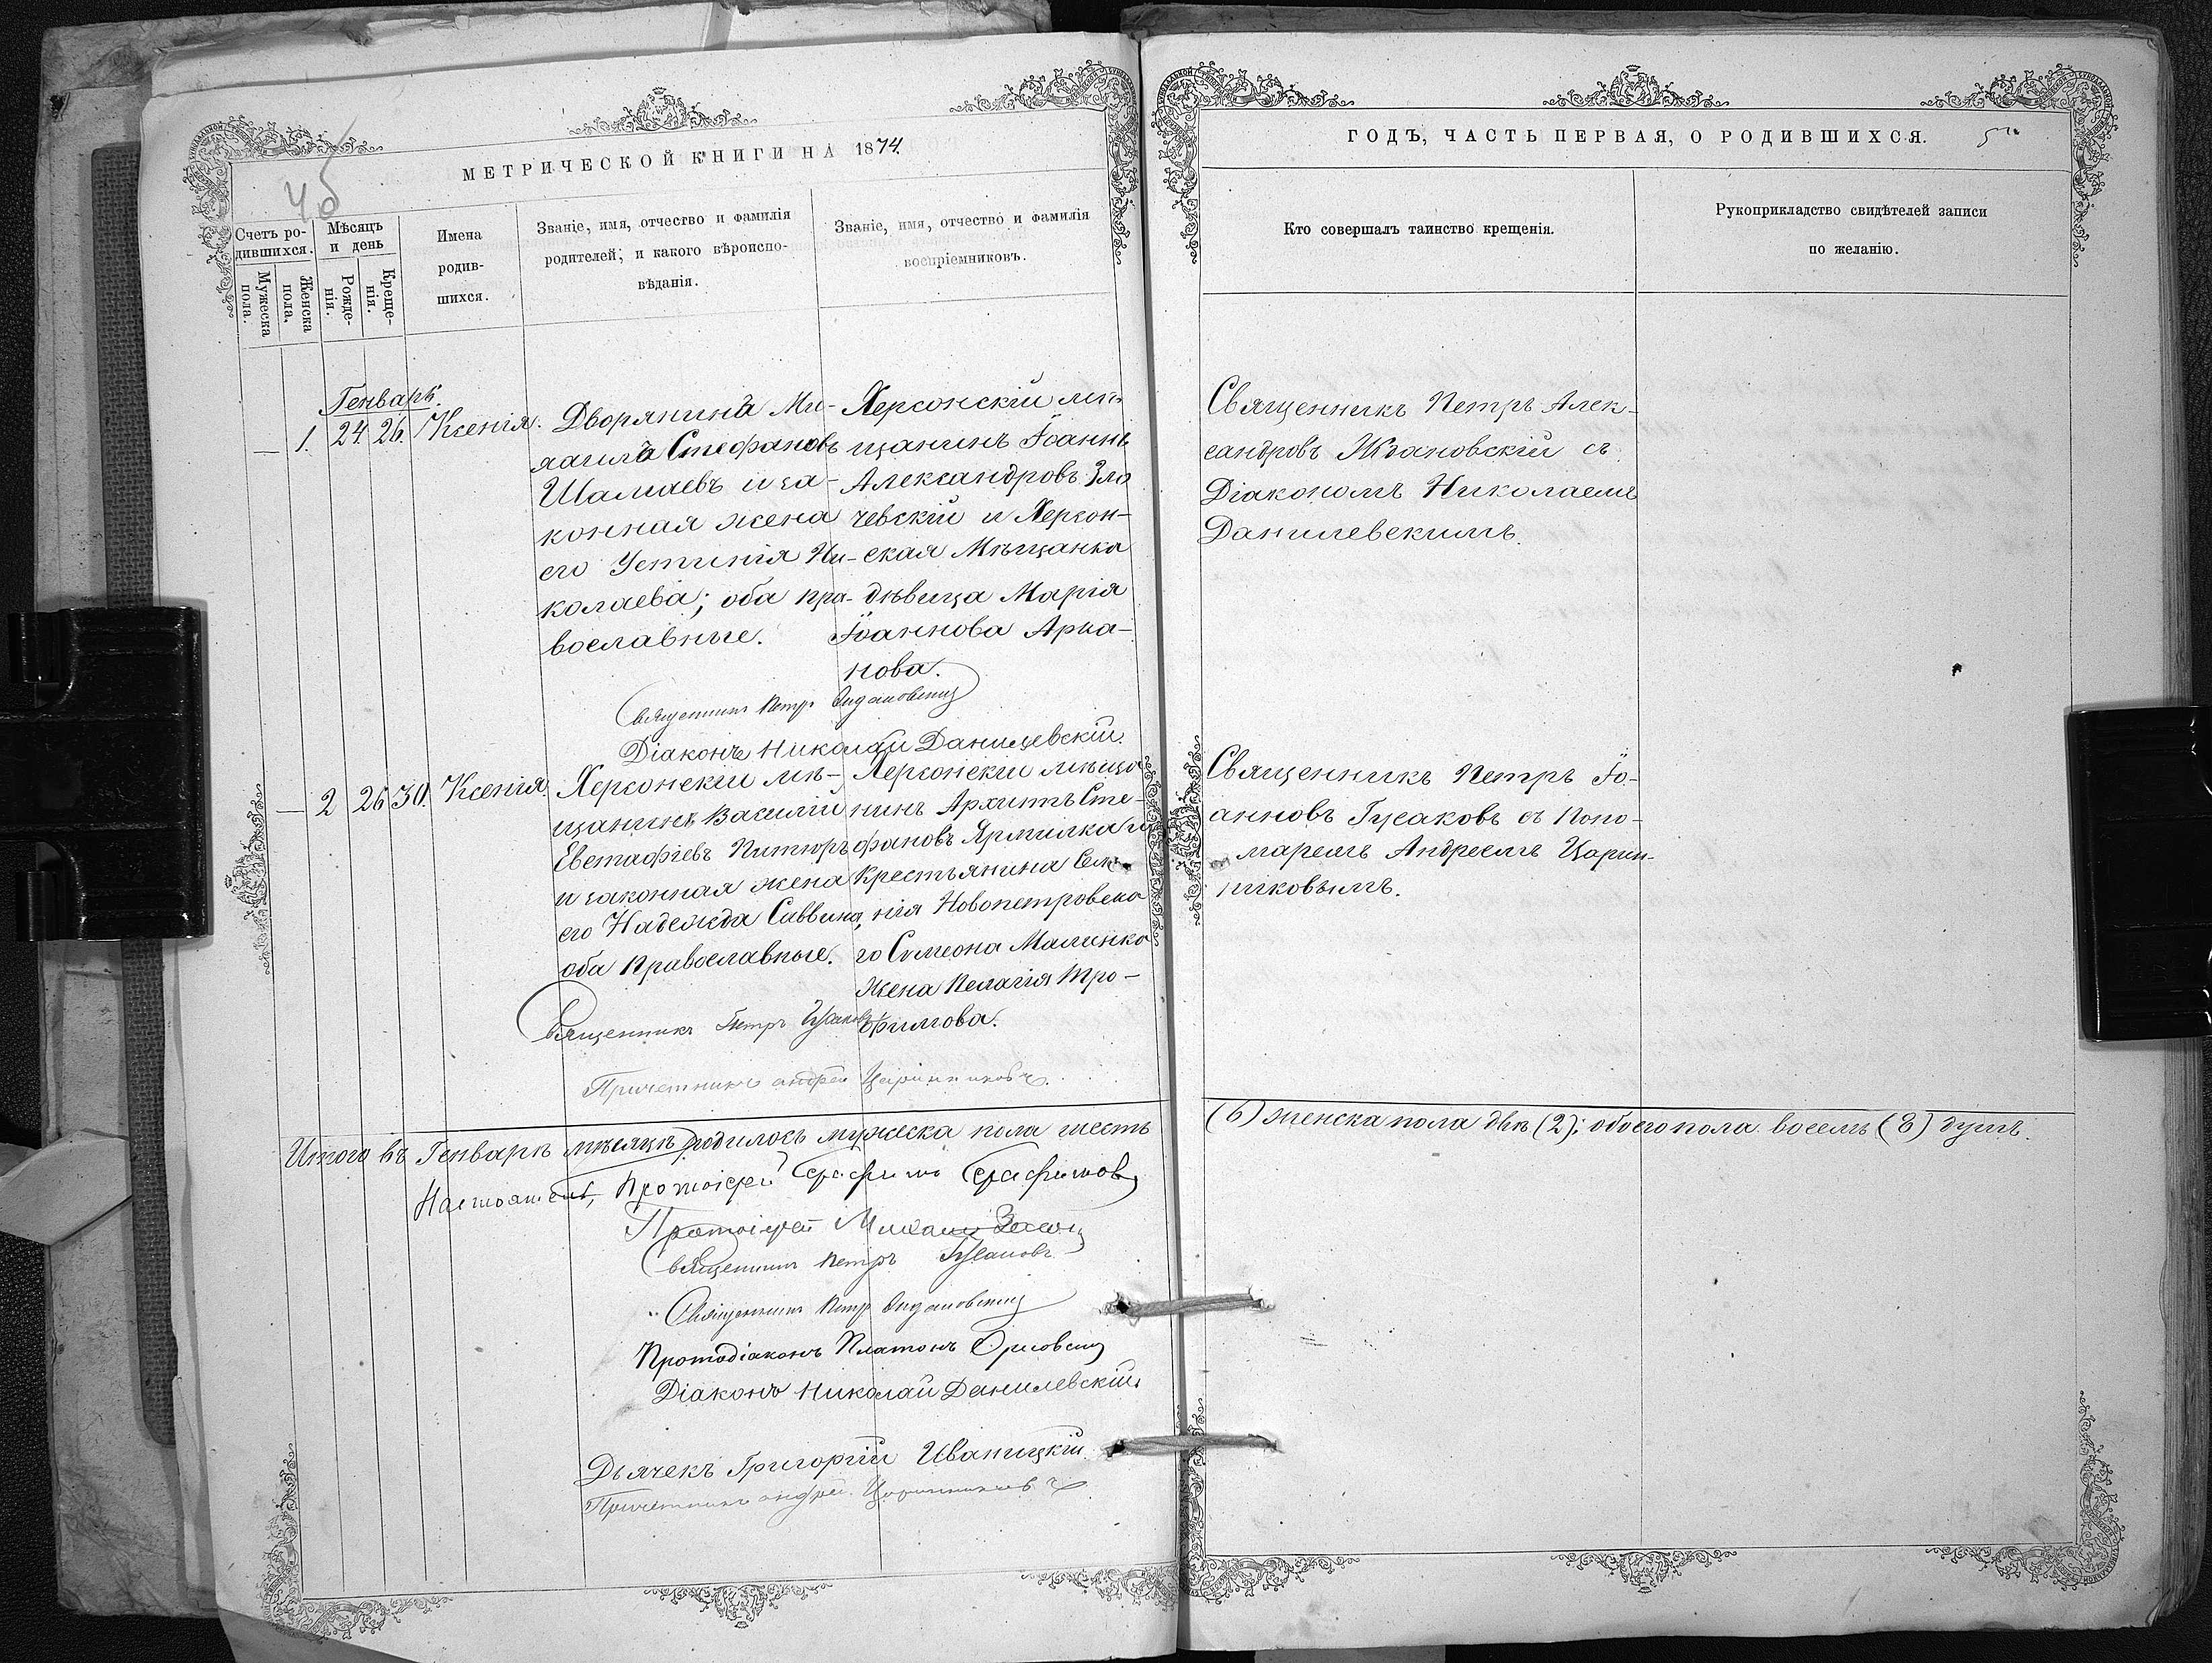 МЕТРИЧЕСКОЙ КНИГИ НА 1874.
Счетъ ро-
дившихся.
Мужеска
пола.
Женска
пола.
Мѣсяцъ
и день
Рожде-
нія.
Креще-
нія.
Имена
родив-
шихся.
Званіе, имя, отчество и фамилія
родителей; и какого вѣроиспо-
вѣданія.
Званіе, имя, отчество и фамилія
воспріемниковъ.
Генварь.
— 1. 24. 26. Ксенія.
Дворянина Ми-
хаила Стефановъ
Шалаевъ и за-
конная жена
его Устинія Ни-
колаева; оба пра-
вославные.
Херсонскій мѣ-
щанинъ Іоаннъ
Александровъ Зло
чевскій и Херсон-
ская Мѣщанка
дѣвица Марія
Іоаннова Арна-
нова.
Священникъ Петръ
Діаконъ Николай Данилевскій.
— 2 26 30. Ксенія.
Херсонскій мѣ-
щанинъ Василій
Евстафіевъ
и законная жена
его Надежда Саввина,
оба православные.
Херсонскій мѣща
нинъ Архипъ Сте-
фановъ Ярмилка и
Крестьянина Селе-
нія Новопетровска
го Симеона Малинка
жена Пелагія Тро-
фимова.
Священникъ Петръ Гусаковъ
Причетникъ Андрей Царинниковъ.
Итого въ Генварѣ мѣсяцѣ родилось мужеска пола шесть
Настоятель, Протоіерей Серафимъ Серафимовъ
Протоіерей Михаилъ
Священникъ Петръ Гусаковъ
Священникъ Петръ
Протодіаконъ Платонъ
Діаконъ Николай Данилевскій
Дьячекъ Григорій Иваницкій
Причетникъ Андрей Царинниковъ
ГОДЪ, ЧАСТЬ ПЕРВАЯ, О РОДИВШИХСЯ.
Кто совершалъ таинство крещенія.
Рукоприкладство свидѣтелей записи
по желанію.
Священникъ Петръ Алек-
сандровъ Ждановскій съ
Діакономъ Николаемъ
Данилевскимъ.
Священникъ Петръ Іо-
анновъ Гусаковъ съ Поно-
маремъ Андреемъ Царин-
никовымъ.
(6) женска пола двѣ (2); обоего пола восемь (8) душъ.